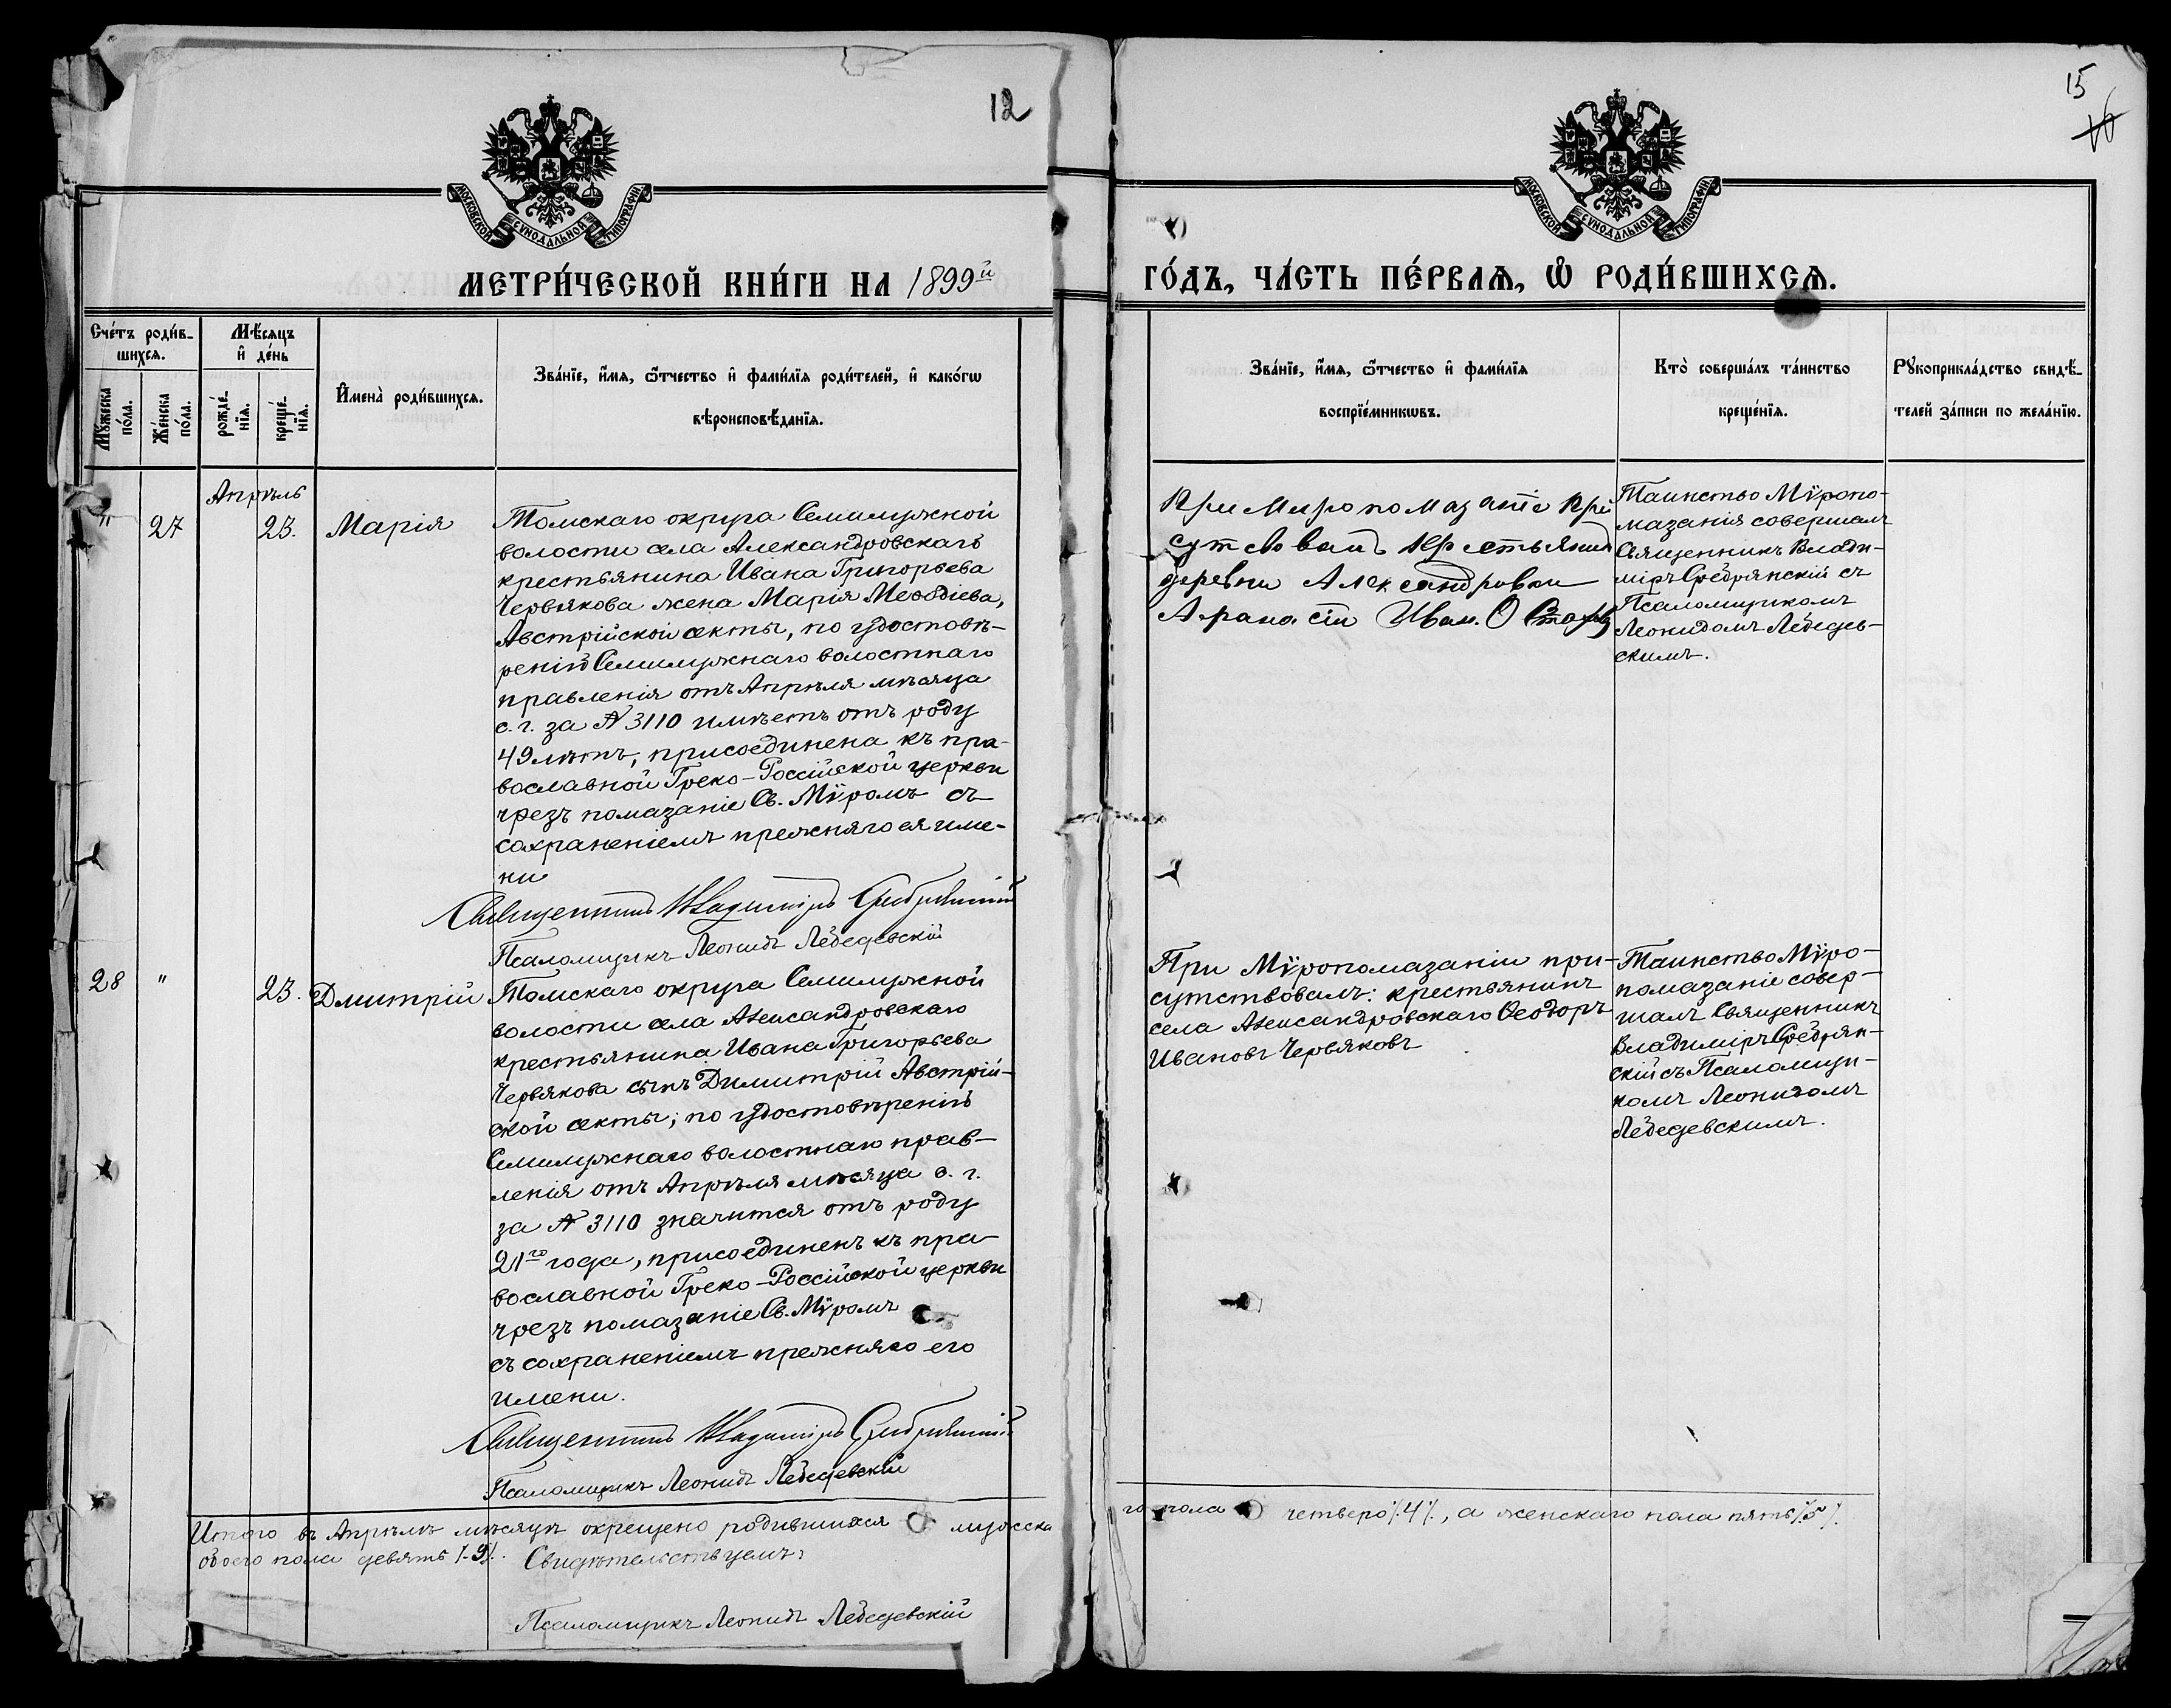 12
15
16
МОСКОВСКОЙ СѴНОДАЛЬНОЙ ТИПОГРАФІИ.
МОСКОВСКОЙ СѴНОДАЛЬНОЙ ТИПОГРАФІИ.
МЕТРИ́ЧЕСКОЙ КНИ́ГИ НА 1899й
ГО́ДЪ, ЧА́СТЬ ПЕ́РВАѦ, Ѽ РОДИ́ВШИХСѦ.
Сче́тъ роди́в-
шихсѧ.
Мѣ́сѧцъ
и҆ де́нь
Мꙋ́жеска
по́ла.
Же́нска
по́ла.
рожде́-
нїѧ.
креще́-
нїѧ.
И҆мена̀ роди́вшихсѧ.
Зва́нїе, и҆́мѧ, ѻ҆́тчество и҆ фами́лїѧ роди́телей, и҆ како́гѡ
вѣроисповѣ́данїѧ.
Зва́нїе, и҆́мѧ, ѻ҆́тчество и҆ фами́лїѧ
воспрїе́мникѡвъ.
Кто̀ соверша́лъ та́инство
креще́нїѧ.
Рꙋкоприкла́дство свидѣ́-
телей за́писи по жела́нїю.
Апрѣль
" 27 23. Марія
Томскаго округа Семилужной
волости села Александровскаго
крестьянина Ивана Григорьева
Червякова жена Марія Меѳодіева,
Австрійской секты, по удостовѣ-
ренію Семилужнаго волостнаго
правленія отъ Апрѣля мѣсяца
с. г. за № 3110 имѣетъ отъ роду
49 лѣтъ, присоединена къ пра-
вославной Греко-Россійской церкви
чрезъ помазаніе Св. Мѵромъ съ
сохраненіемъ прежняго ея име-
ни
Священникъ Владиміръ Сребрянскій
Псаломщикъ Леонидъ Лебедевскій
При Миропомазаніе при
сутсвовалъ крестьянинъ
деревни Александровки
Иван.
Таинство Мѵропо-
мазанія совершалъ
Священникъ Влади-
міръ Сребрянскій съ
Псаломщикомъ
Леонидомъ Лебедев-
скимъ.
28 " 23. Дмитрій
Томскаго округа Семилужной
волости села Александровскаго
крестьянина Ивана Григорьева
Червякова сынъ Димитрій Австрій-
ской секты; по удостовѣренію
Семилужнаго волостнаго прав-
ленія отъ Апрѣля мѣсяца с. г.
за № 3110 значится отъ роду
21го года, присоединенъ къ пра-
вославной Греко-Россійской церкви
чрезъ помазаніе Св. Мѵромъ
съ сохраненіемъ прежняго его
имени.
Священникъ Владиміръ Сребрянскій
Псаломщикъ Леонидъ Лебедевскій
При Мѵропомазаніи при-
сутствовалъ: крестьянинъ
села Александровскаго Ѳеодоръ
Ивановъ Червяковъ
Таинство Мѵро-
помазаніе совер-
шалъ Священникъ
Владиміръ Сребрян-
скій съ Псаломщи-
комъ Леонидомъ
Лебедевскимъ.
Итого въ Апрѣлѣ мѣсяцѣ окрещено родившихся мужеска
го пола четверо /.4/., а женскаго пола пять /.5/.
обоего пола девять /.9/. Свидѣтельствуемъ:
Псаломщикъ Леонидъ Лебедевскій